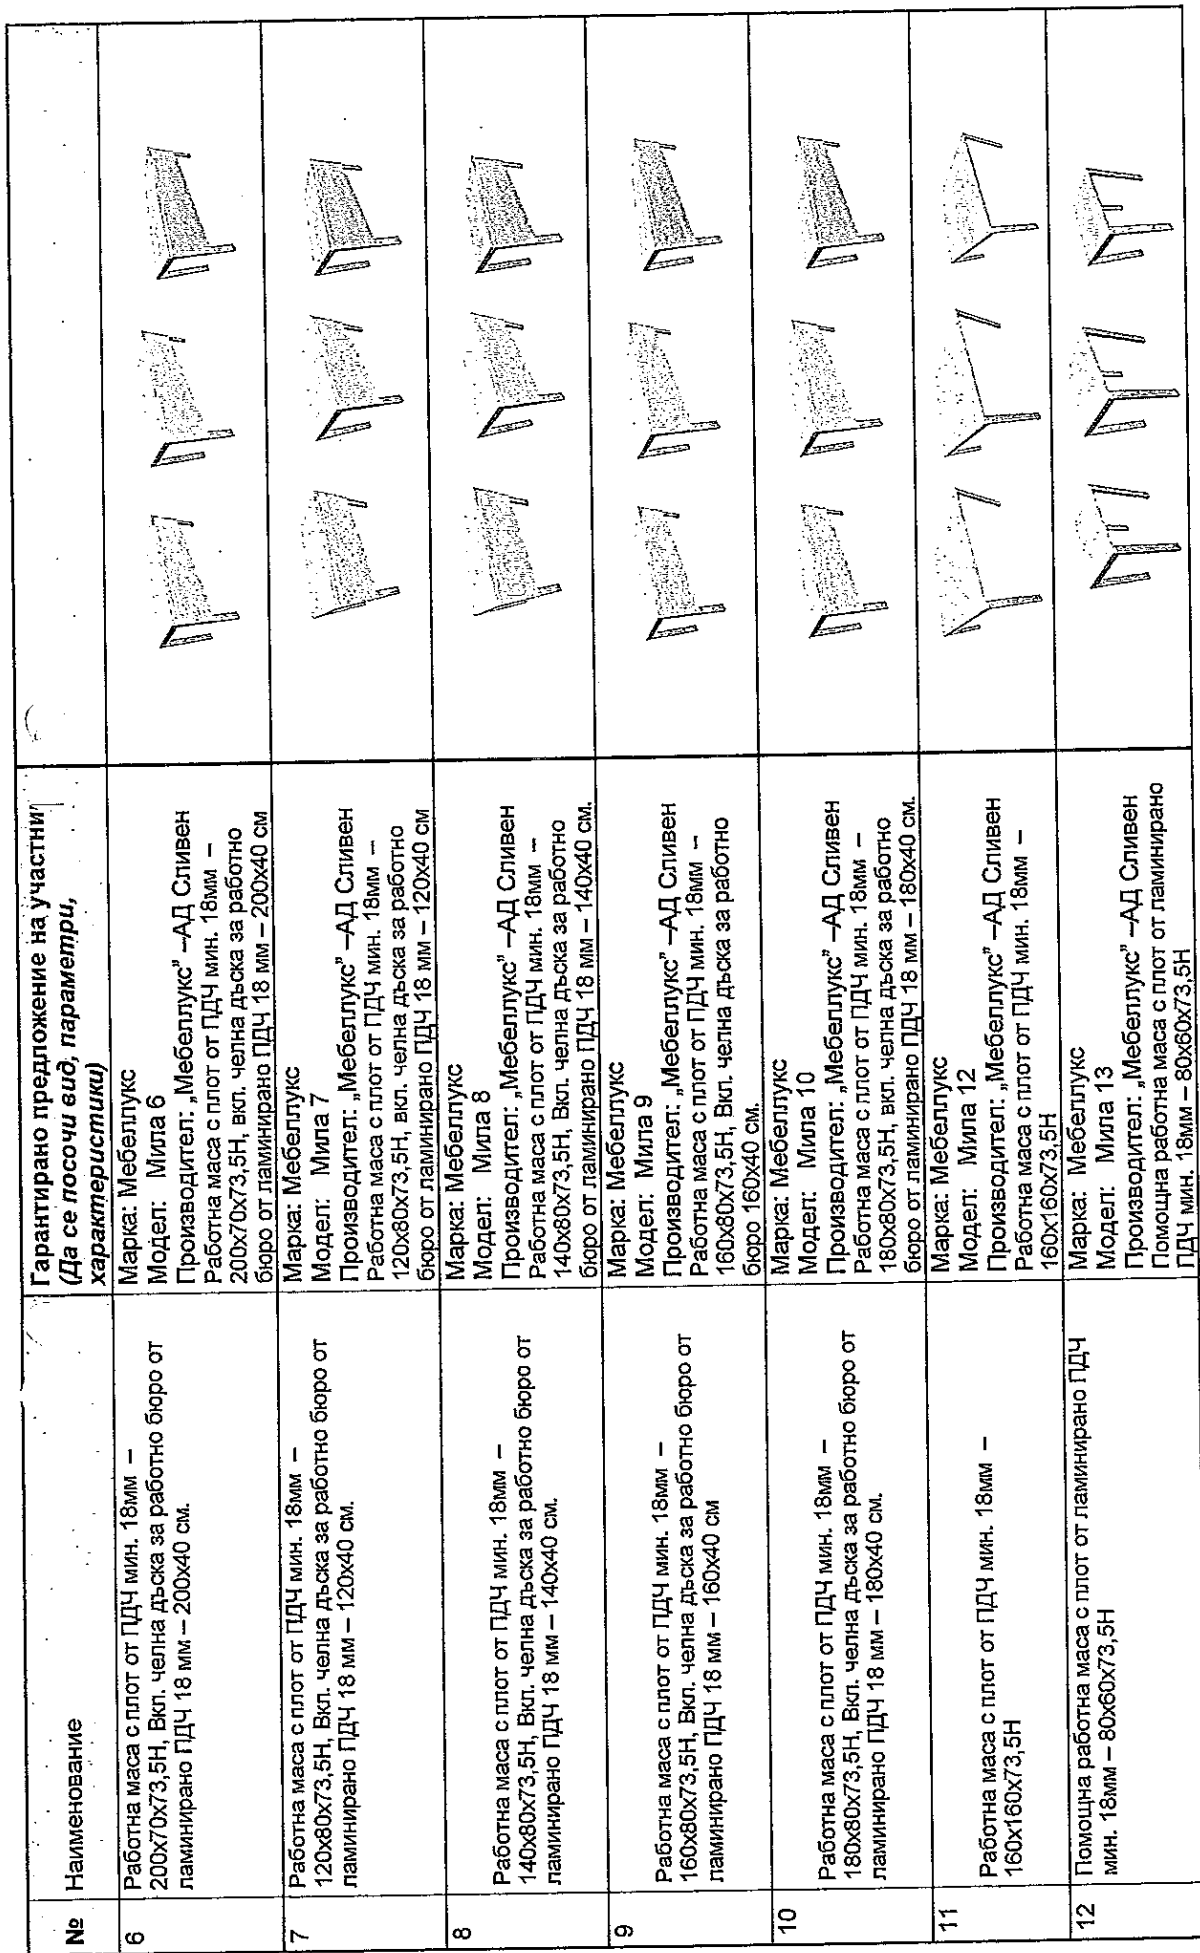 №
Наименование
Гарантирано предложение на участни
(Да се посочи вид, параметри,
характеристики)
6
Работна маса с плот от ПДЧ мин. 18мм –
200x70x73,5H, Вкл. челна дъска за работно бюро от
ламинирано ПДЧ 18 мм – 200x40 см.
Марка: Мебеллукс
Модел: Мила 6
Производител: „Мебеллукс” –АД Сливен
Работна маса с плот от ПДЧ мин. 18мм –
200x70x73,5H, вкл. челна дъска за работно
бюро от ламинирано ПДЧ 18 мм – 200x40 см
7
Работна маса с плот от ПДЧ мин. 18мм –
120x80x73,5H, Вкл. челна дъска за работно бюро от
ламинирано ПДЧ 18 мм – 120x40 см.
Марка: Мебеллукс
Модел: Мила 7
Производител: „Мебеллукс” –АД Сливен
Работна маса с плот от ПДЧ мин. 18мм –
120x80x73,5H, вкл. челна дъска за работно
бюро от ламинирано ПДЧ 18 мм – 120x40 см
8
Работна маса с плот от ПДЧ мин. 18мм –
140x80x73,5H, Вкл. челна дъска за работно бюро от
ламинирано ПДЧ 18 мм – 140x40 см.
Марка: Мебеллукс
Модел: Мила 8
Производител: „Мебеллукс” –АД Сливен
Работна маса с плот от ПДЧ мин. 18мм –
140x80x73,5H, Вкл. челна дъска за работно
бюро от ламинирано ПДЧ 18 мм – 140x40 см.
9
Работна маса с плот от ПДЧ мин. 18мм –
160x80x73,5H, Вкл. челна дъска за работно бюро от
ламинирано ПДЧ 18 мм – 160x40 см
Марка: Мебеллукс
Модел: Мила 9
Производител: „Мебеллукс” –АД Сливен
Работна маса с плот от ПДЧ мин. 18мм –
160x80x73,5H, Вкл. челна дъска за работно
бюро 160x40 см.
10
Работна маса с плот от ПДЧ мин. 18мм –
180x80x73,5H, Вкл. челна дъска за работно бюро от
ламинирано ПДЧ 18 мм – 180x40 см.
Марка: Мебеллукс
Модел: Мила 10
Производител: „Мебеллукс” –АД Сливен
Работна маса с плот от ПДЧ мин. 18мм –
180x80x73,5H, вкл. челна дъска за работно
бюро от ламинирано ПДЧ 18 мм – 180x40 см.
11
Работна маса с плот от ПДЧ мин. 18мм –
160x160x73,5H
Марка: Мебеллукс
Модел: Мила 12
Производител: „Мебеллукс” –АД Сливен
Работна маса с плот от ПДЧ мин. 18мм –
160x160x73,5H
12
Помощна работна маса с плот от ламинирано ПДЧ
мин. 18мм – 80x60x73,5H
Марка: Мебеллукс
Модел: Мила 13
Производител: „Мебеллукс” –АД Сливен
Помощна работна маса с плот от ламинирано
ПДЧ мин. 18мм – 80x60x73,5H